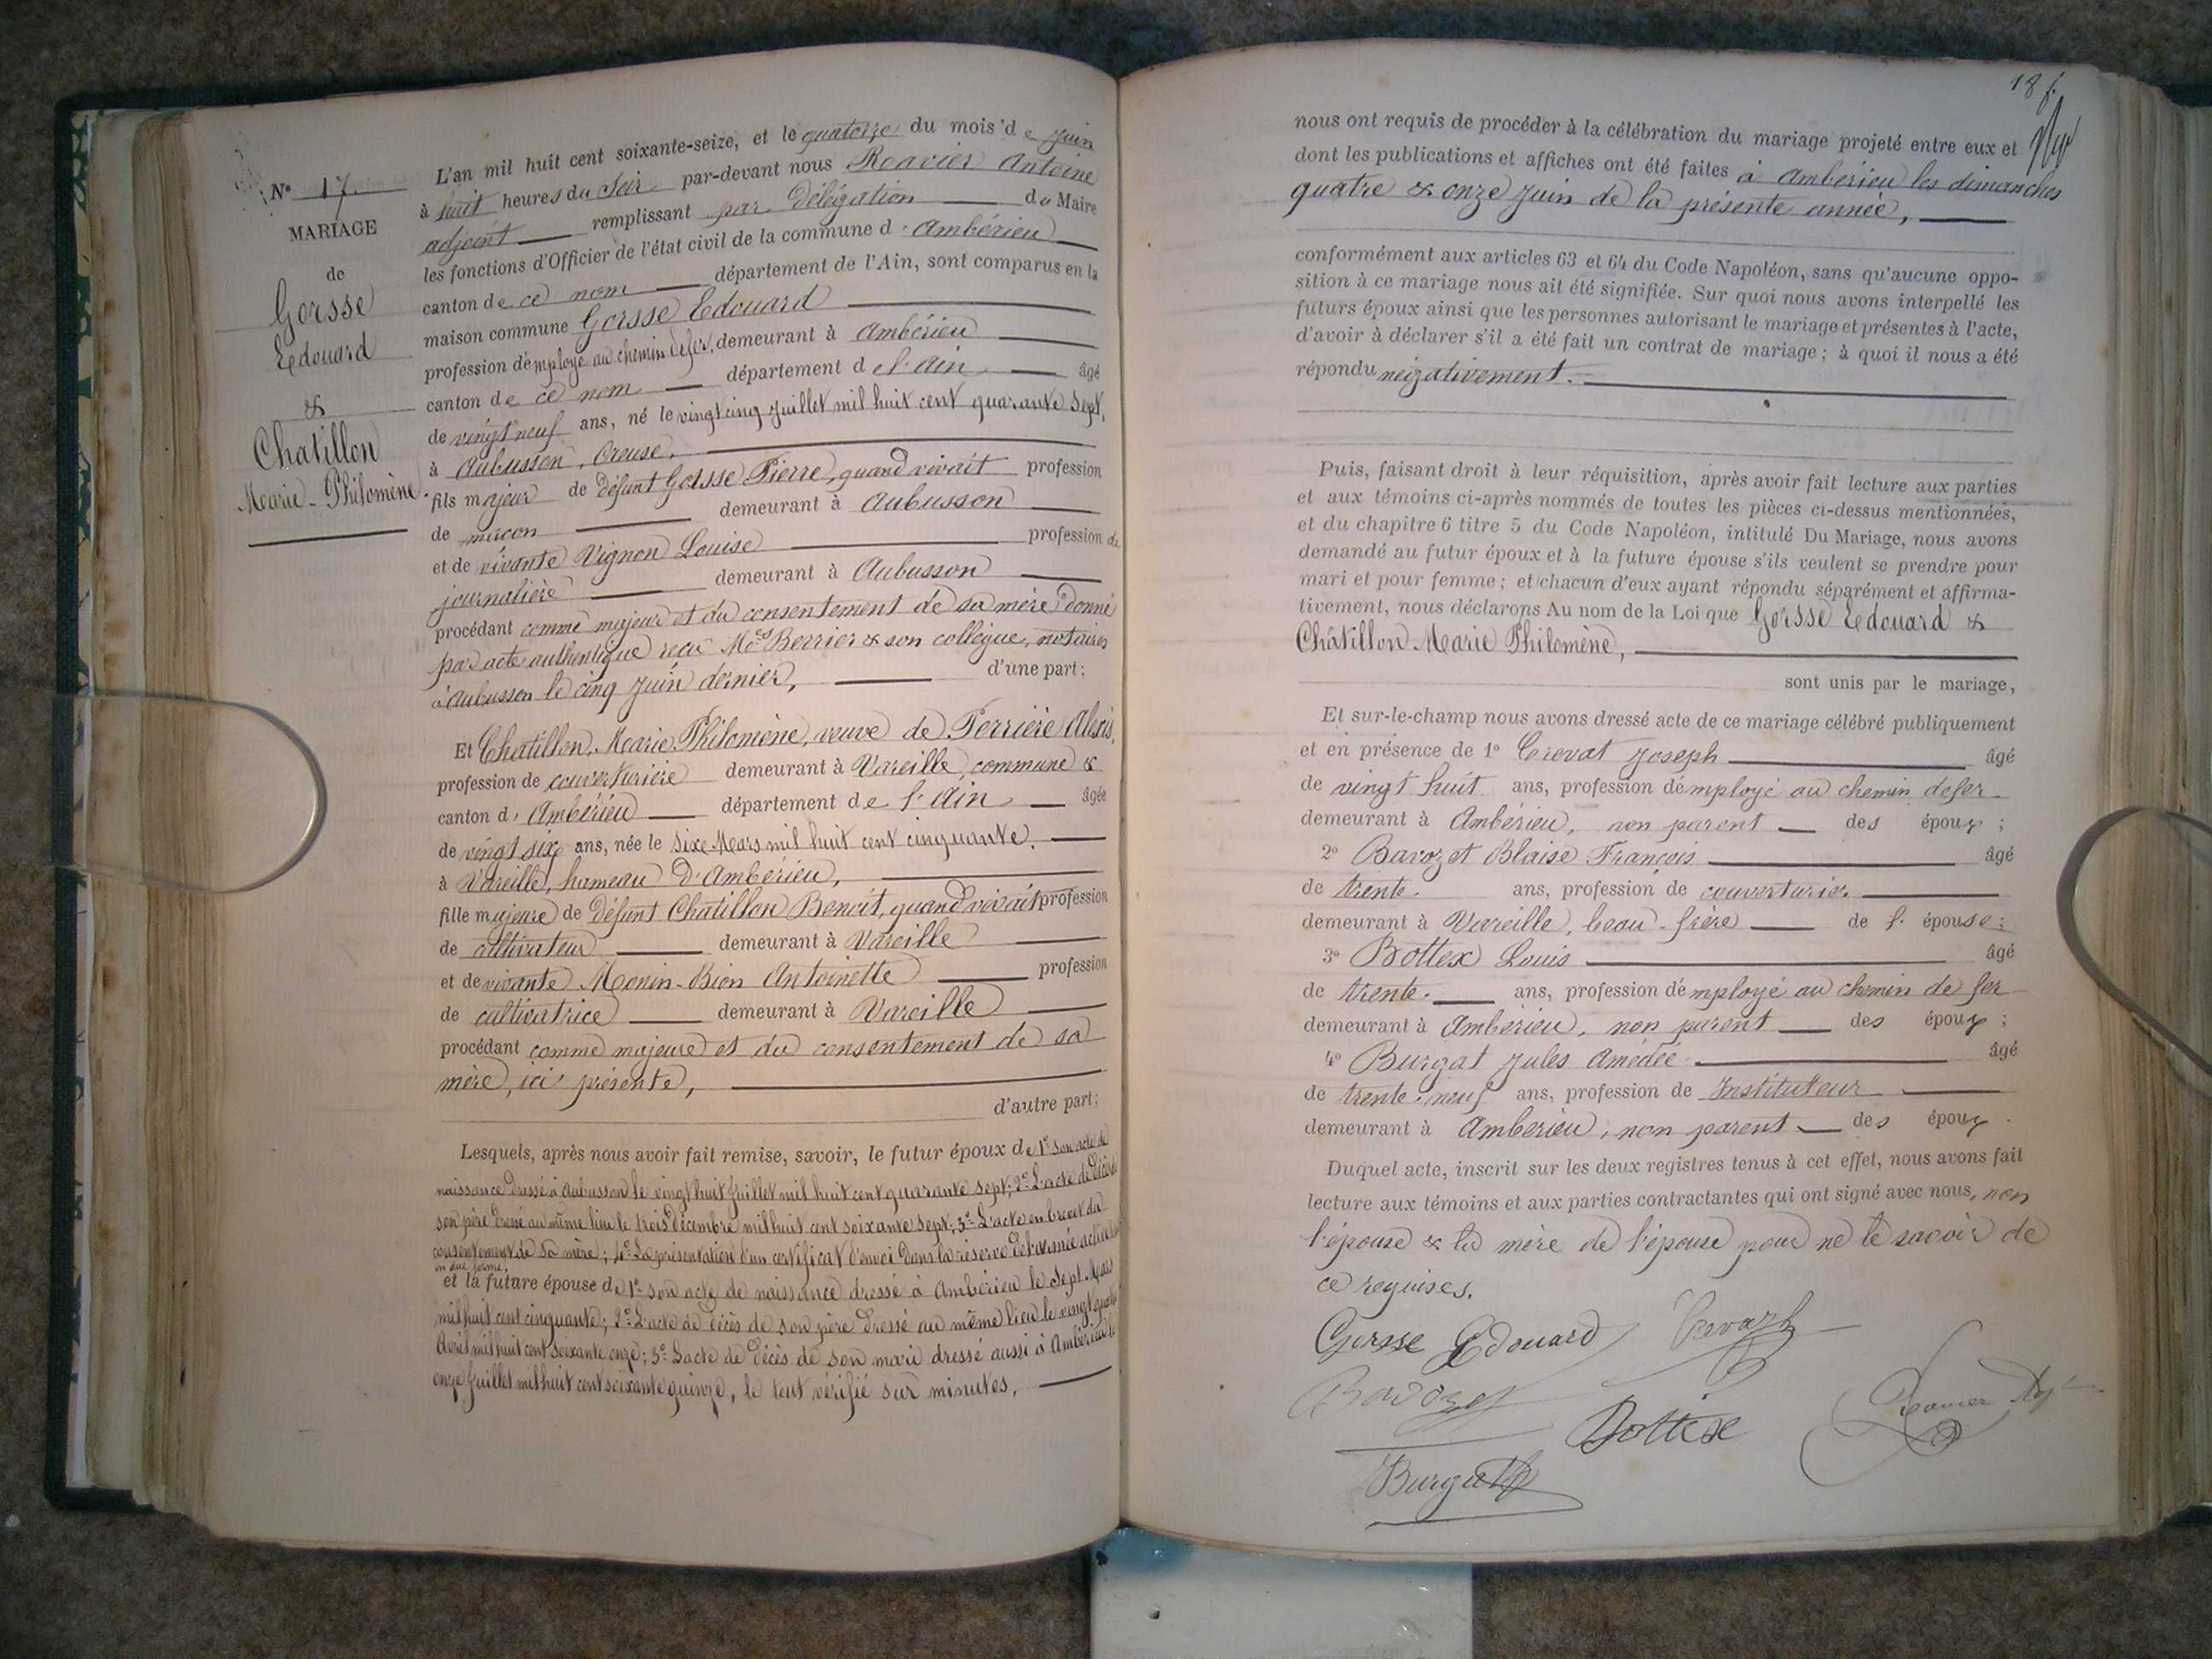 N° 17.
MARIAGE
de
Gorsse
Edouard
&
Chatillon
Marie-Philomène.
L'an mil huit cent soixante-seize, et le quatorze du mois de Juin
à huit heures du Soir par-devant nous Roavier Antoine
adjoint remplissant par Délégation du Maire
les fonctions d'Officier de l'état civil de la commune d'Ambérieu
canton de ce nom département de l'Ain, sont comparus en la
maison commune Gorsse Edouard
profession d'employé au chemin de fer, demeurant à Ambérieu
canton de ce nom département de l'Ain âgé
de vingt neuf ans, né le vingt cinq Juillet mil huit cent quarante Sept,
à Aubusson, Creuse,
fils majeur de défunt Gorsse Pierre, quand vivait profession
de maçon demeurant à Aubusson
et de vivante Vignon Louise profession de
journalière demeurant à Aubusson
procédant comme majeur et du consentement de sa mère donné
par acte authentique reçu Mes Berrier & son collègue, notaires
à Aubusson le cinq Juin dernier, d'une part;
Et Chatillon, Marie Philomène, veuve de Perrière Alexis,
profession de couverturière demeurant à Vareille, commune &
canton d'Ambérieu département de l'Ain âgée
de vingt six ans, née le Six Mars mil huit cent cinquante,
à Vareille, hameau D'Ambérieu,
fille majeure de Défunt Chatillon Benoit, quand vivait profession
de cultivateur demeurant à Vareille
et de vivante Monin-Bion Antoinette profession
de cultivatrice demeurant à Vareille
procédant comme majeure et du consentement de sa
mère, ici présente,
d'autre part;
Lesquels, après nous avoir fait remise, savoir, le futur époux de 1° son acte de
naissance dressé à Aubusson le vingt huit Juillet mil huit cent quarante sept; 2° L'acte de Décès de
son père Dressé au même lieu le trois Décembre mil huit cent soixante sept; 3° L'acte en brevet du
consentement de Sa mère; 4° La présentation d'un certificat d'envoi Dans la réserve de l'armée active
en due forme;
et la future épouse de 1° son acte de naissance dressé à Ambérieu le Sept Mars
mil huit cent cinquante; 2° L'acte de Décès de son père Dressé au même lieu le vingt quatre
Avril mil huit cent soixante onze; 3° L'acte de Décès de son mari dressé aussi à Ambérieu le
onze Juillet mil huit cent soixante quinze, le tout vérifié sur minutes,
18 f.
nous ont requis de procéder à la célébration du mariage projeté entre eux et
dont les publications et affiches ont été faites à Ambérieu les dimanches
quatre & onze Juin de la présente année,
conformément aux articles 63 et 64 du Code Napoléon, sans qu'aucune oppo-
sition à ce mariage nous ait été signifiée. Sur quoi nous avons interpellé les
futurs époux ainsi que les personnes autorisant le mariage et présentes à l'acte,
d'avoir à déclarer s'il a été fait un contrat de mariage; à quoi il nous a été
répondu négativement.
Puis, faisant droit à leur réquisition, après avoir fait lecture aux parties
et aux témoins ci-après nommés de toutes les pièces ci-dessus mentionnées,
et du chapitre 6 titre 5 du Code Napoléon, intitulé Du Mariage, nous avons
demandé au futur époux et à la future épouse s'ils veulent se prendre pour
mari et pour femme; et chacun d'eux ayant répondu séparément et affirma-
tivement, nous déclarons Au nom de la Loi que Gorsse Edouard &
Châtillon Marie Philomène,
sont unis par le mariage,
Et sur-le-champ nous avons dressé acte de ce mariage célébré publiquement
et en présence de 1° Crevat Joseph âgé
de vingt huit ans, profession d'employé au chemin de fer
demeurant à Ambérieu, non parent des époux;
2° Bavozet Blaise François âgé
de trente. ans, profession de couverturier
demeurant à Vareille, beau-frère de l'épouse;
3° Bottex Louis âgé
de trente. ans, profession d'employé au chemin de fer
demeurant à Ambérieu, non parent des époux;
4° Burgat Jules Amédée âgé
de trente-neuf ans, profession de Instituteur
demeurant à Ambérieu, non parent des époux.
Duquel acte, inscrit sur les deux registres tenus à cet effet, nous avons fait
lecture aux témoins et aux parties contractantes qui ont signé avec nous, non
l'épouse & la mère de l'épouse pour ne le savoir de
ce requises.
Gorsse Edouard
Bavozet
Bottex
Burgat